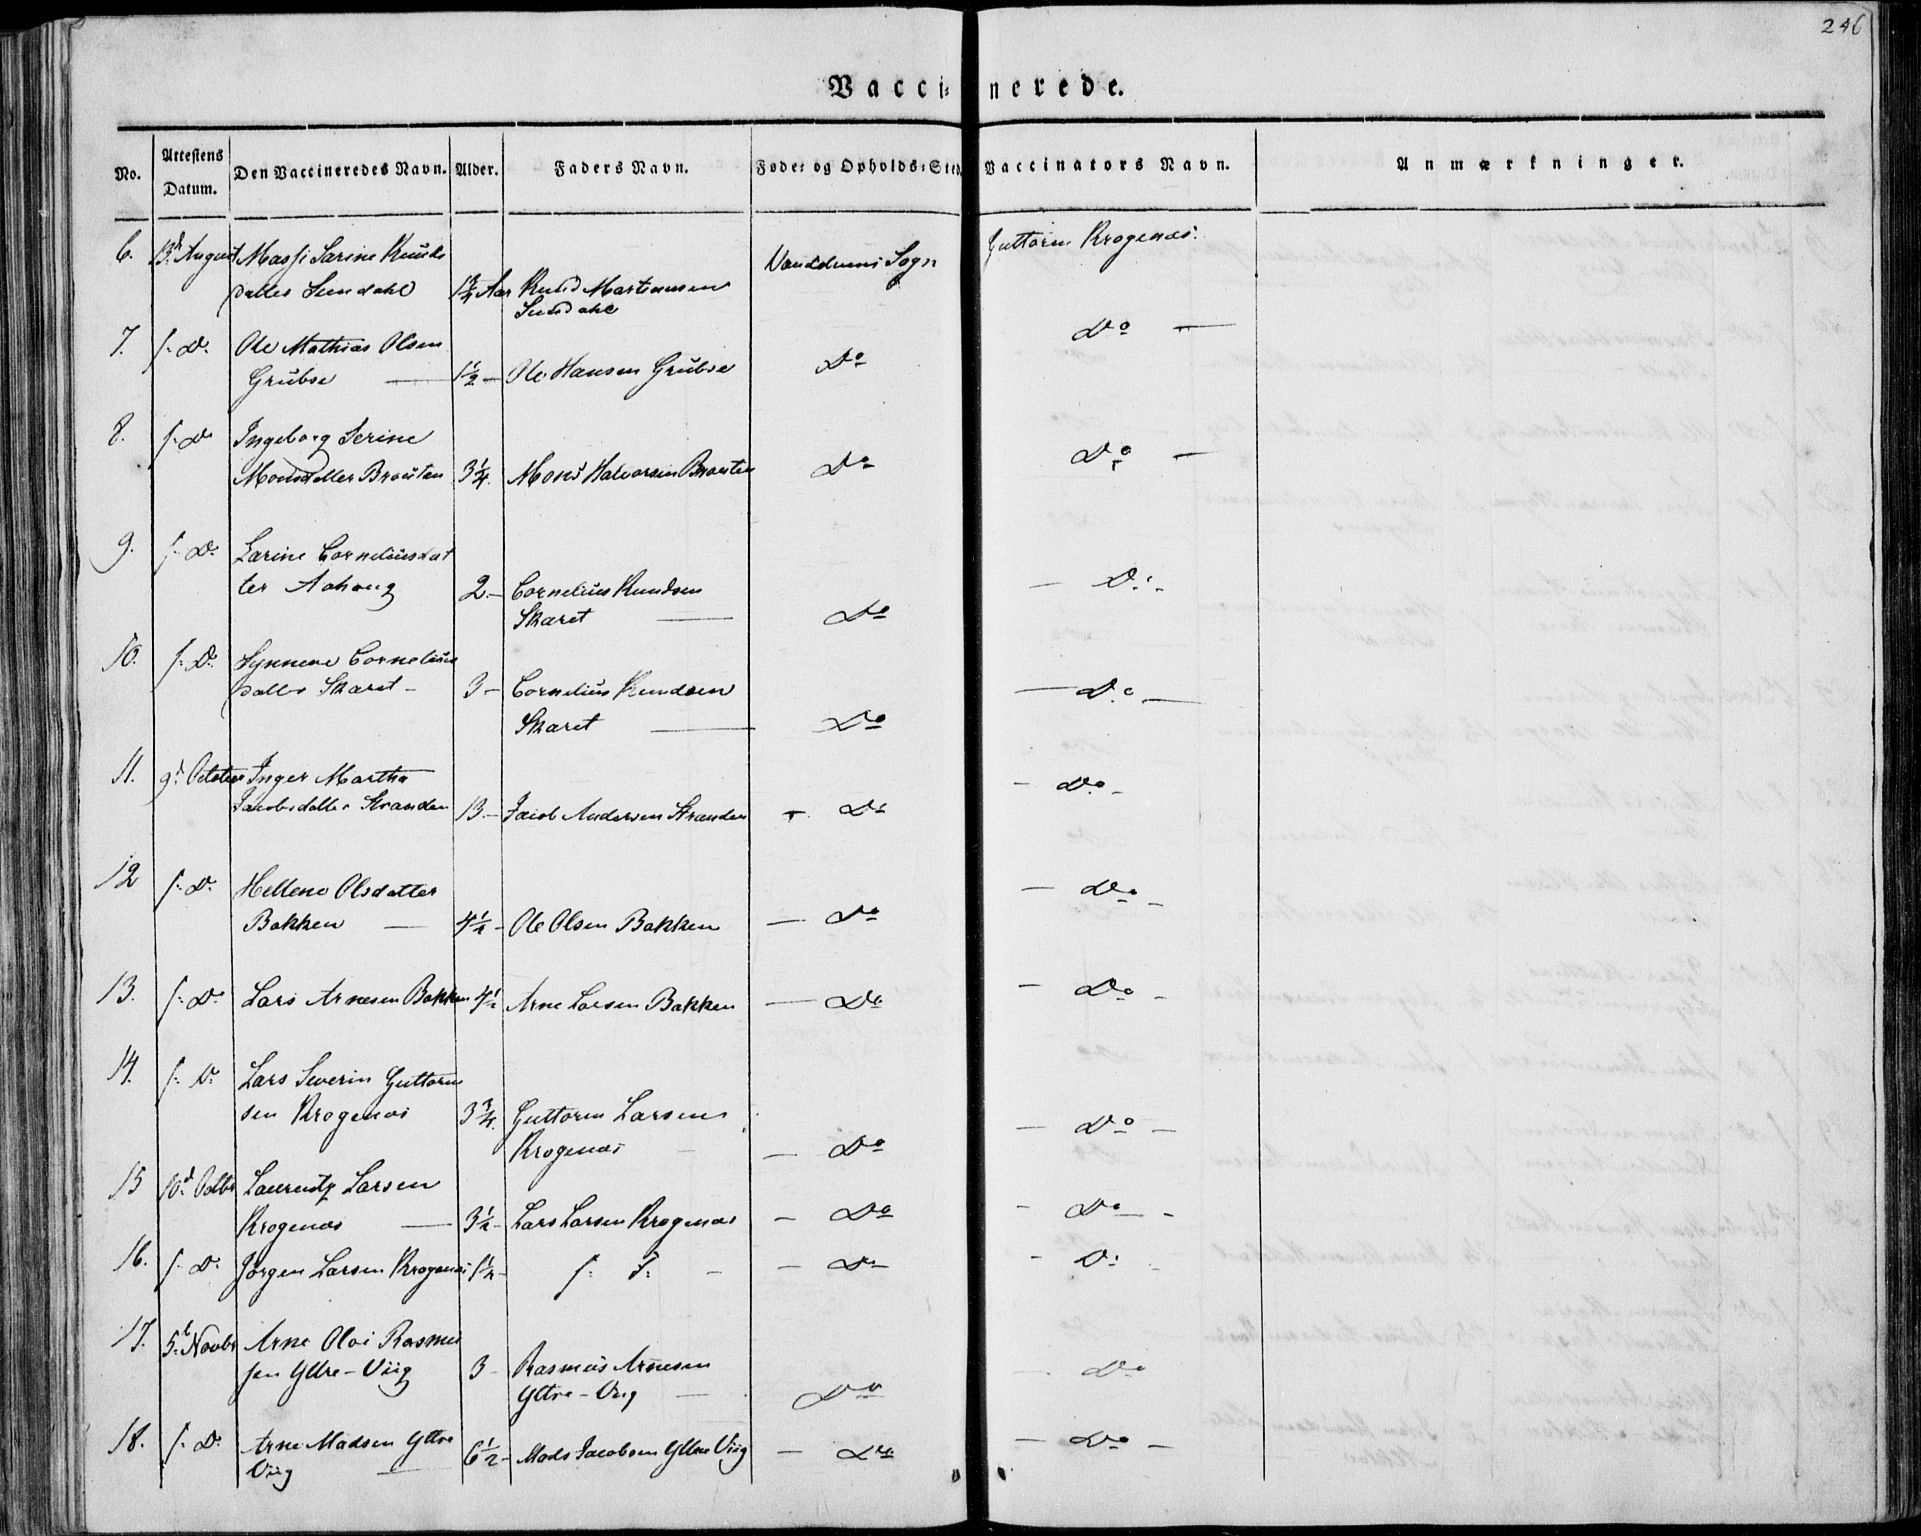 246
Vaccinerede.
No. Attestens Datum. Den Vaccineredes Navn. Alder. Faders Navn. Føde- og Opholds-Sted. Vaccinators Navn. Anmærkninger.
6. 13d August Sarine Knuds Vanelvens Sogn Guttorm Krogenæs.
datter Sundahl 1¾ Aar Knud Martinusen
Sundahl
7. f: D: Ole Mathias Olsen Do —
Grübse — 1½ — Ole Hansen Grübse Do
8. f: Do Ingeborg Serine Do —
Monsdatter Brousten 3¼. Mons Halvorsen Brousten Do
9. f: Do Larine Corneliusdat
ter 2.— Cornelius Knudsen — D: -
Skaret — Do
10. f: D: Synneve Cornelius
datter Skaret - 3 — Cornelius Knudsen — Do —
Skaret — Do
11. 9d October Inger Martha — Do -
Jacobsdatter Stranden 13.— Jacob Andersen Stranden - Do
12 f: D: Hellene Olsdatter — Do -
Bakken — 4½ - Ole Olsen Bakken — Do
13. f: D: Lars Arnesen Bakken 4½ Arne Larsen Bakken — Do - Do -
14. f: D: Lars Severin Guttorm
sen Krogenæs 3¾. Guttorm Larsen — Do —
Krogenæs — — Do
15 10d Octbr Laurentz Larsen
Krogenæs — 3½ - Lars Larsen Krogenæs — Do - Do -
16. f: D: Jørgen Larsen Krogenæs 1½ - f: F: — — Do - D:
17. 5t Novbr Arne Olai Rasmus
sen Yttre-Viig 3 — Rasmus Arnesen — Do
Yttre-Viig — Do
18. f: D: Arne Madsen Yttre — Do —
Viig — 6½ - Mads Jacobsen Yttre Viig — Do